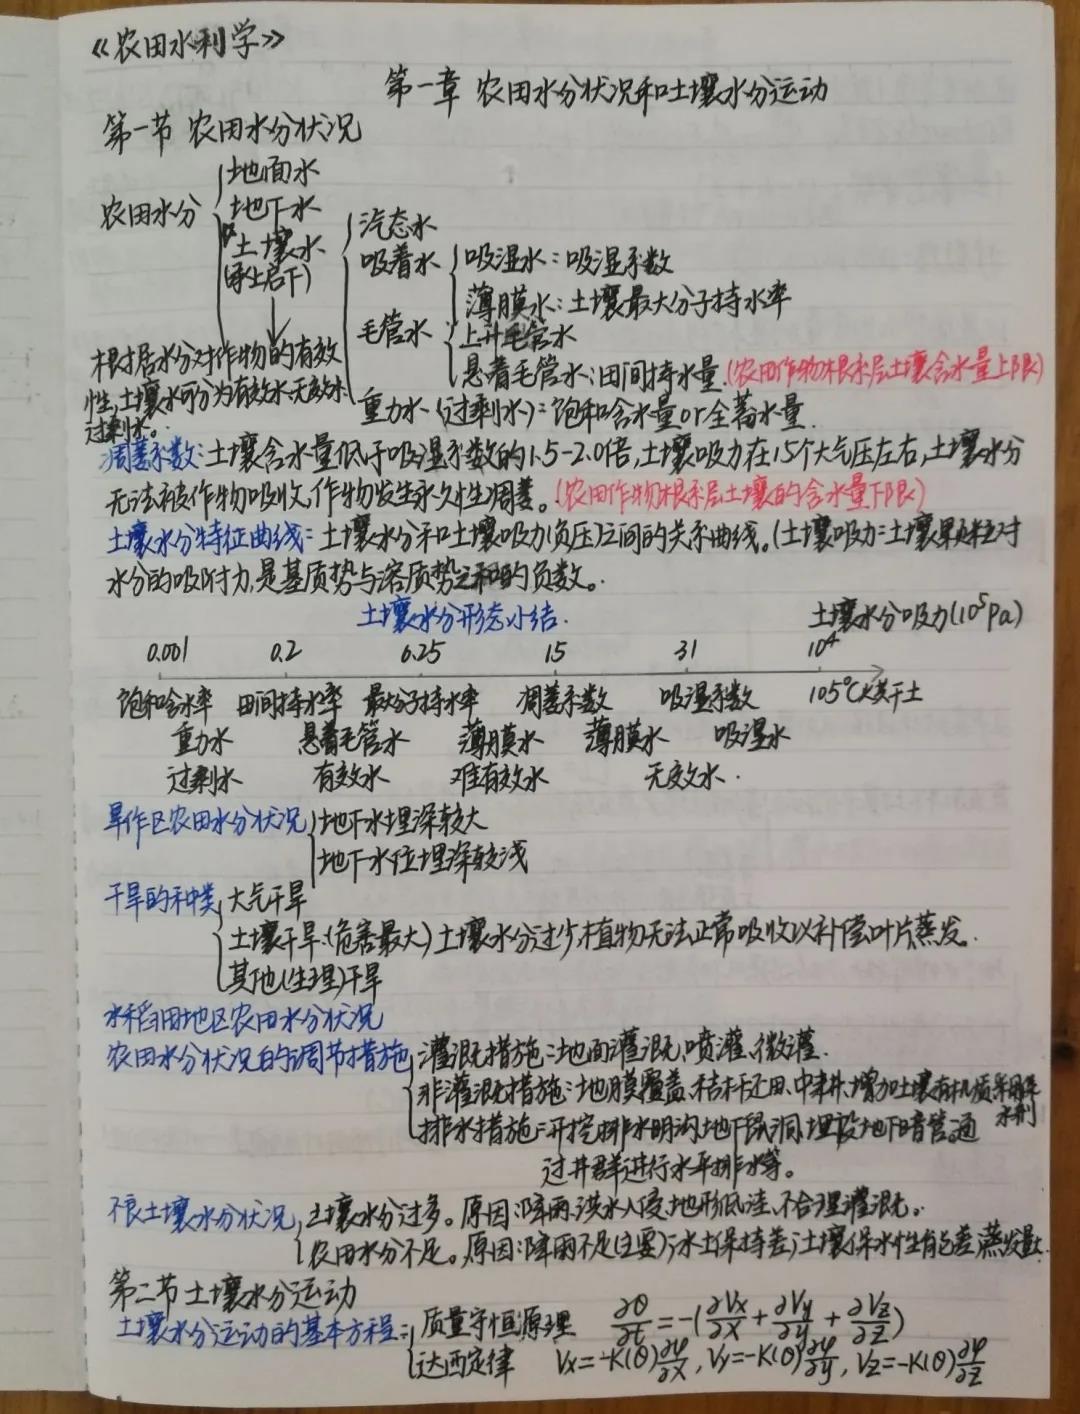 《农田水利学》
第一章 农田水分状况和土壤水分运动
第一节 农田水分状况
农田水分
地面水
地下水
土壤水
(承上启下)
汽态水
吸着水
吸湿水：吸湿系数
薄膜水：土壤最大分子持水率
毛管水
上升毛管水
悬着毛管水：田间持水量.(农田作物根系层土壤含水量上限)
重力水(过剩水)：饱和含水量or全蓄水量.
根据水分对作物的有效
性,土壤水可分为有效水、无效水、
过剩水。
凋萎系数：土壤含水量低于吸湿系数的1.5-2.0倍,土壤吸力在15个大气压左右,土壤水分
无法被作物吸收,作物发生永久性凋萎。(农田作物根系层土壤的含水量下限)
土壤水分特征曲线：土壤水分和土壤吸力(负压)之间的关系曲线。(土壤吸力：土壤颗粒对
水分的吸附力,是基质势与溶质势之和的负数。
土壤水分形态小结.
土壤水分吸力(10⁵Pa)
0.001 0.2 6.25 15 31 10⁴
饱和含水率 田间持水率 最大分子持水率 凋萎系数 吸湿系数 105℃烘干土
重力水 悬着毛管水 薄膜水 薄膜水 吸湿水
过剩水 有效水 难有效水 无效水.
旱作区农田水分状况
地下水埋深较大
地下水位埋深较浅
干旱的种类
大气干旱
土壤干旱(危害最大)土壤水分过少,植物无法正常吸收以补偿叶片蒸发.
其他(生理)干旱
水稻田地区农田水分状况
农田水分状况的调节措施
灌溉措施：地面灌溉、喷灌、微灌.
非灌溉措施：地膜覆盖、秸秆还田、中耕、增加土壤有机质、采用保
水剂
排水措施：开挖排水明沟、地下鼠洞、埋设地下暗管。通
过井群进行水平排水等。
不良土壤水分状况
土壤水分过多。原因：降雨、洪水入侵、地形低洼、不合理灌溉。
农田水分不足。原因：降雨不足(主要)；水土保持差；土壤保水性能差；蒸发量大.
第二节 土壤水分运动
土壤水分运动的基本方程：
质量守恒原理 ∂θ/∂t=-(∂Vx/∂x+∂Vy/∂y+∂Vz/∂z)
达西定律 Vx=-K(θ)∂φ/∂x, Vy=-K(θ)∂φ/∂y, Vz=-K(θ)∂φ/∂z